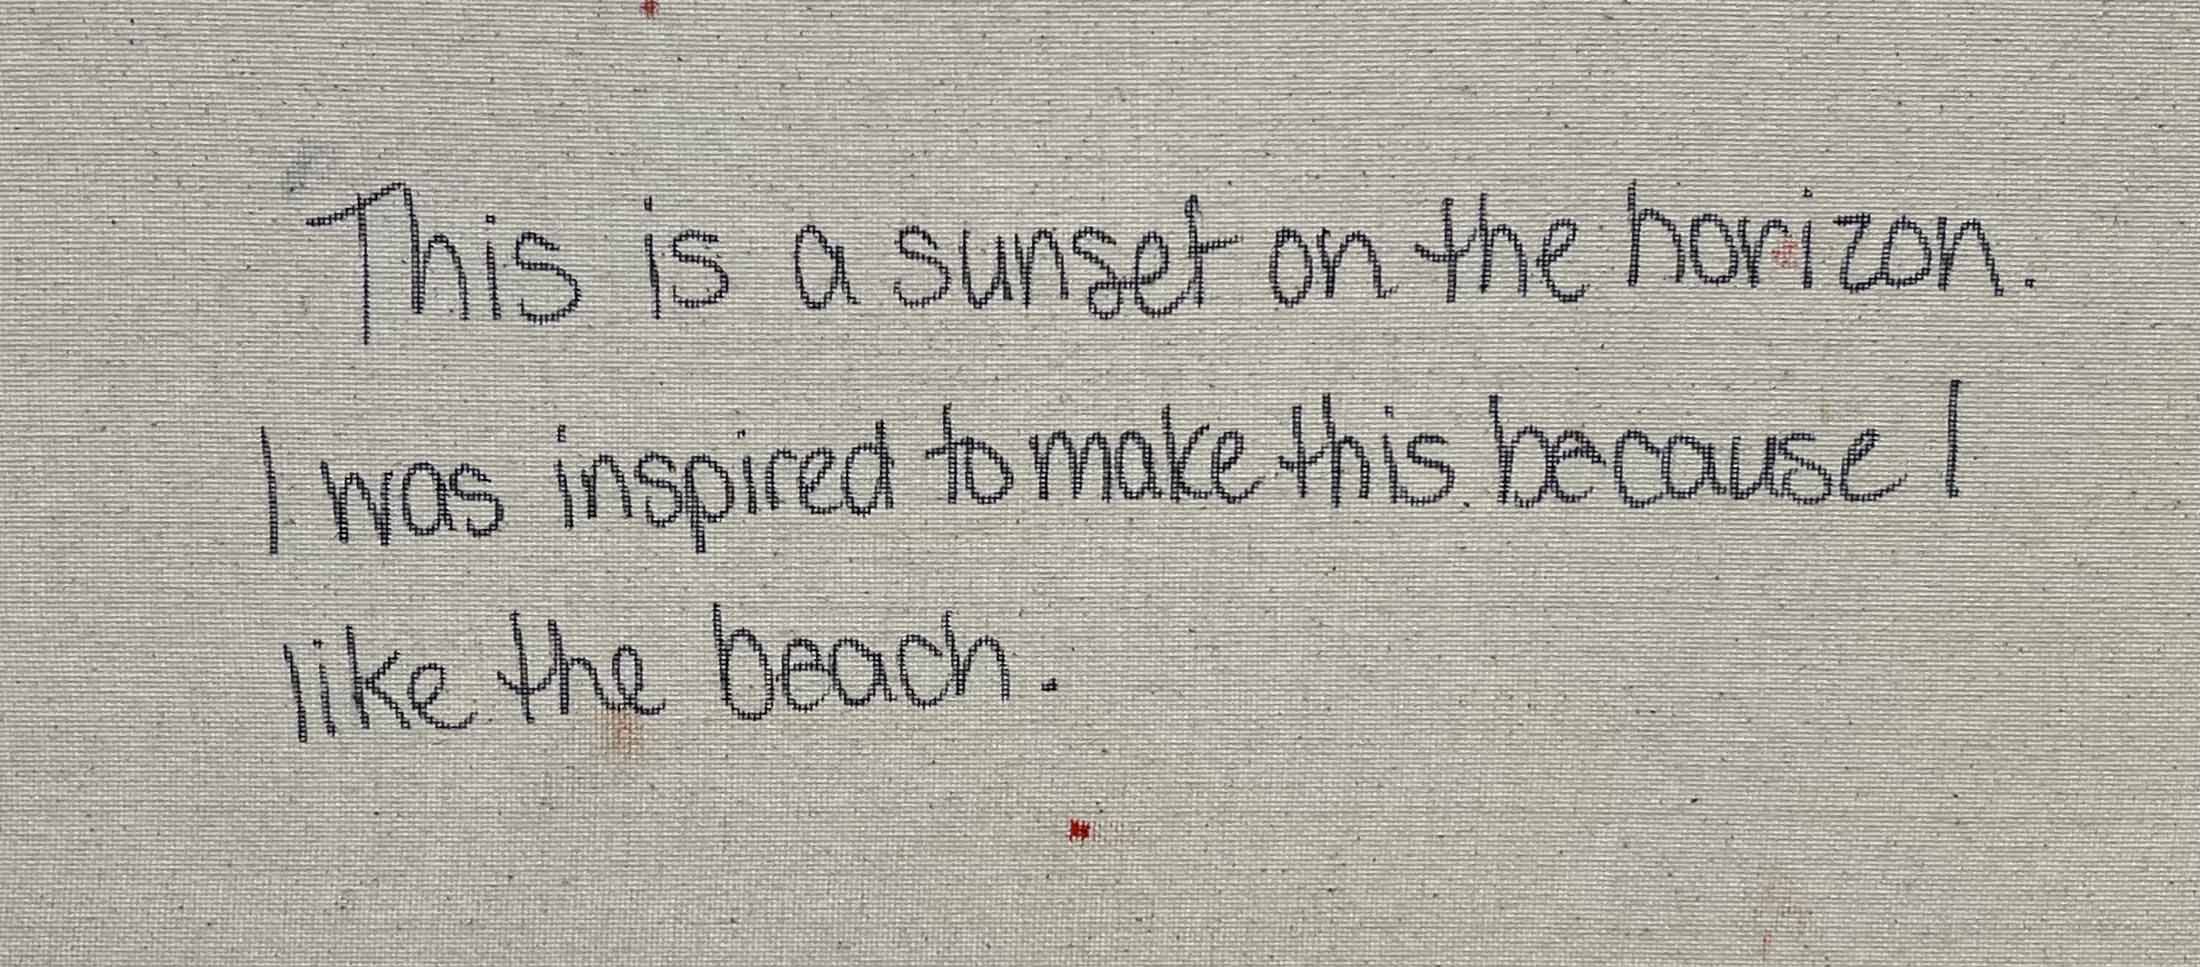 This is a sunset on the horizon.
I was inspired to make this because I
like the beach.